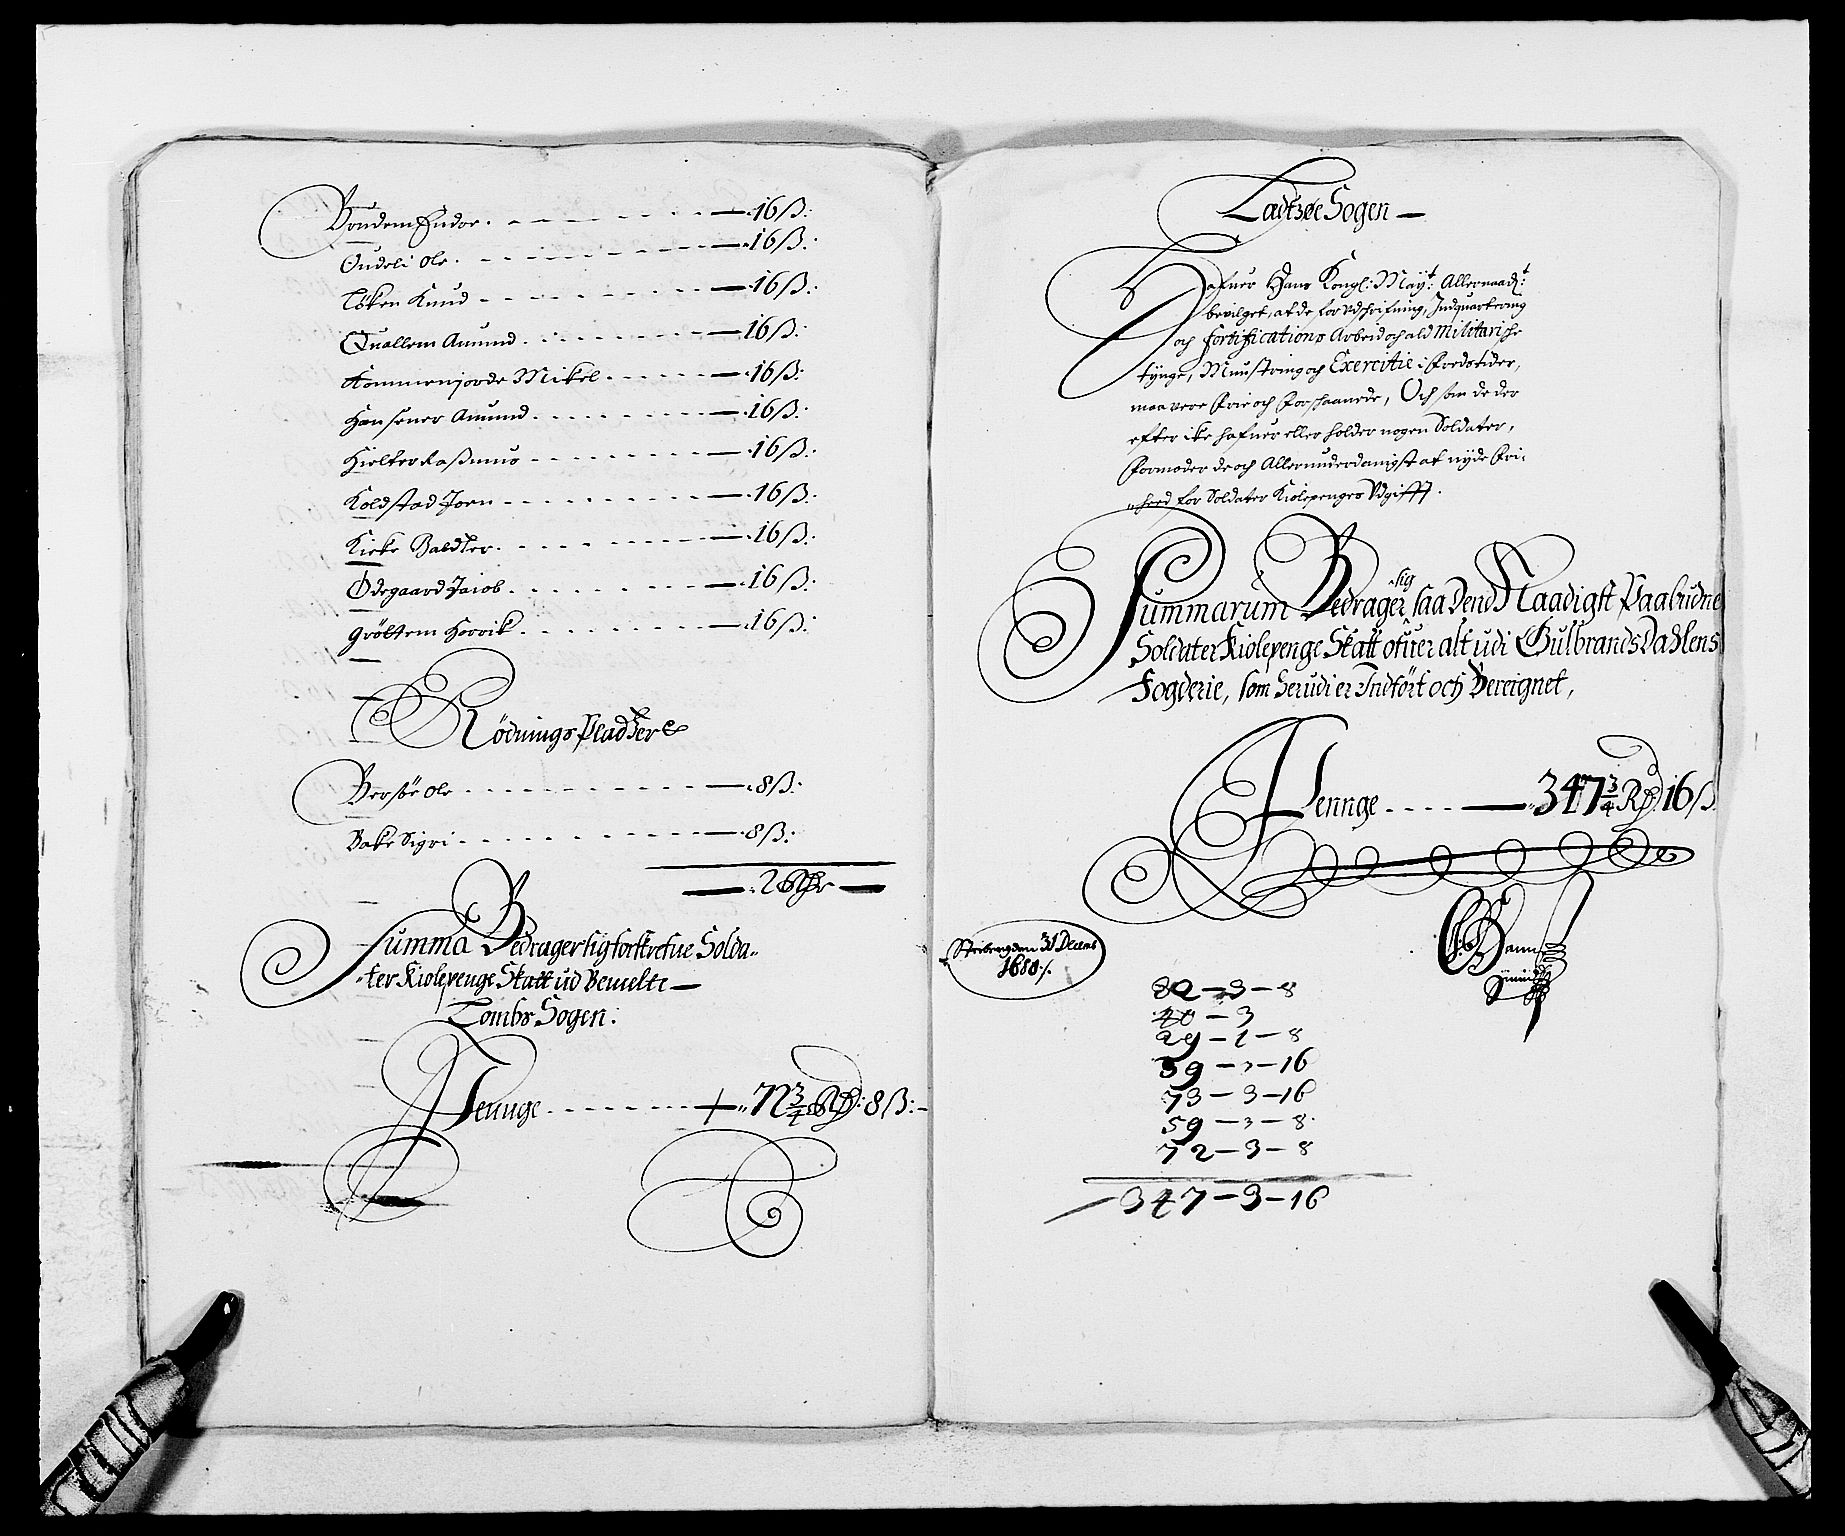 Brudem Endor. - - - - - - 16 ß:
Oudeli Ole. - - - - - - 16 ß:
Löken Knud - - - - - - 16 ß:
Quallem Amund. - - - - - 16 ß:
Kommenjorde Mikel - - - - - 16 ß:
Hansener Amund. - - - - - 16 ß:
Hielter Raßmus - - - - - - 16 ß:
Koldstad Joen - - - - - - 16 ß:
Kirke Baldter. - - - - - - 16 ß:
Ödegaard Jacob. - - - - - 16 ß:
Gröltem Hervik. - - - - - 16 ß:
Rödnings Pladtzer
Versöe Ole - - - - - - 8 ß:
Bake Sigri - - - - - - 8 ß:
2 Rdr
Summa Bedrager sig forskrefne Solda-
ter Kiolepenge Skatt ud Bemelte
Lombs Sogen:
Pennge - - - - - - 72 3/4 Rd: 8 ß:
Ladtzøe Sogen
Hafuer Hans Kongl: Mayt: Allernaadt:
bevilget, at de for Vdschrifning, Indquartering
och fortifications Arbeid och ald Militarische
tynge, Munstring och Exercitie i Fredstider,
maa vere Frie och Forschaanede, Och som de der
efter icke hafuer eller holder nogen Soldater,
Formoder de och Allerunderdanigst at nyde Fri-
heed for Soldater Kiolepenges Vdgifft.
Summarum Bedrager sig saa Dend Naadigst Paabudne
Soldater Kiolepenge Skatt ofuer alt udi Gulbrands Dahlens
Fogderie, som herudi er Indfört och Bereignet,
Pennge - - - - 347 3/4 Rd: 16 ß
den 31 Decemb
1680
82 - 3 - 8
40 - 3
29 - 1 - 8
59 - 3 - 16
73 - 3 - 16
59 - 3 - 8
72 - 3 - 8
347 - 3 - 16